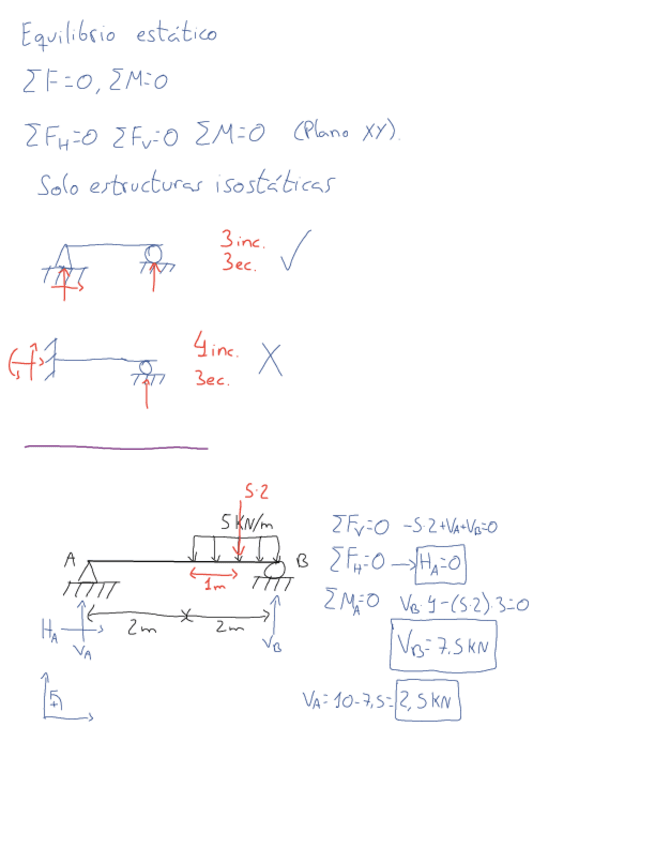 Equilibrio estático
ΣF=0, ΣM=0
ΣF_H=0 ΣF_V=0 ΣM=0 (Plano XY).
Solo estructuras isostáticas
3 inc.
3 ec.
4 inc.
3 ec.
5·2
5 KN/m
A
B
1m
2m
2m
H_A
V_A
V_B
ΣF_V=0 -5·2+V_A+V_B=0
ΣF_H=0 → H_A=0
ΣM_A=0 V_B·4-(5·2)·3=0
V_B=7.5 KN
V_A=10-7,5=2,5 KN
+